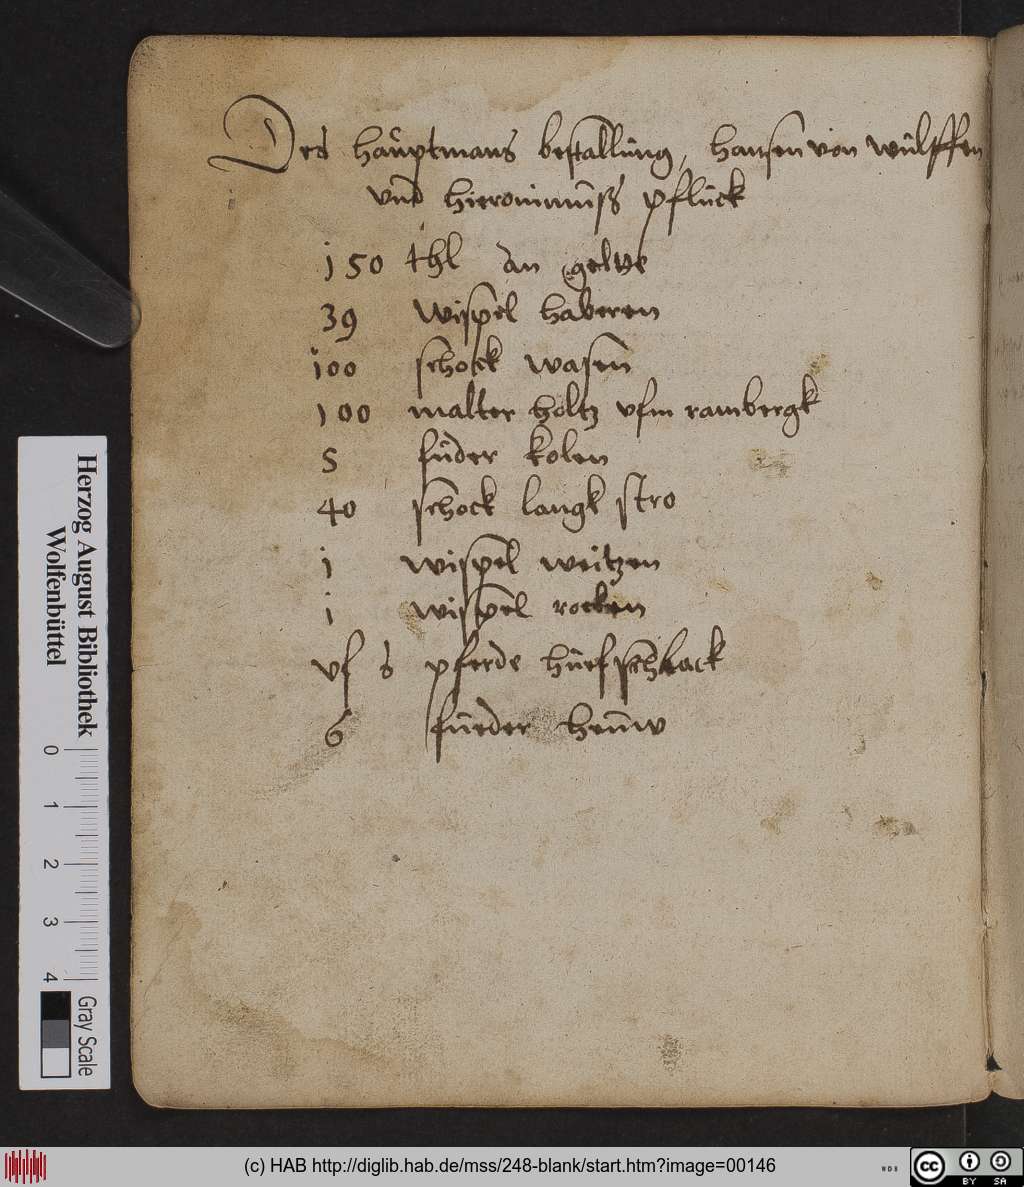 Des hauptmans bestallung, hansen von wülffen
vnd hieronimuß pfluck
150 thl an gelde
39 wispel haberen
100 schock wasen
100 malter holtz vfm rambergk
5 fuder kolen
40 schock langk stro
1 wispel weitzen
1 wispel rocken
vf 5 pferde huefschlack
6 fueder heuw
Herzog August Bibliothek
Wolfenbüttel
0 1 2 3 4
Gray Scale
(c) HAB http://diglib.hab.de/mss/248-blank/start.htm?image=00146
WDB
cc BY SA